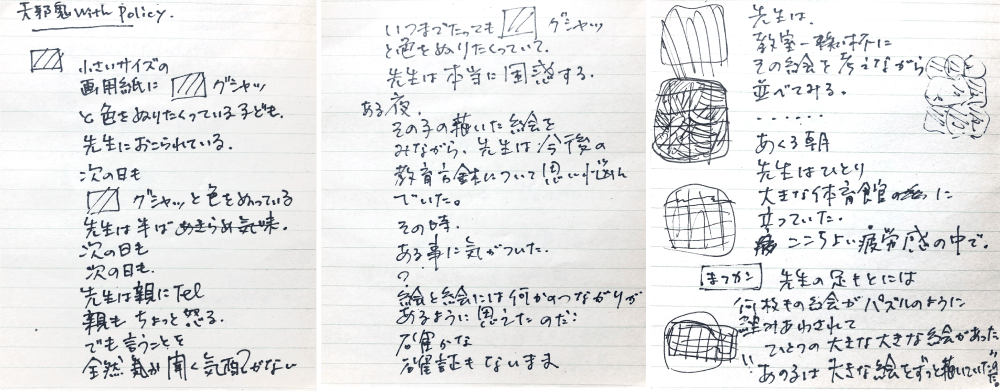 天邪鬼 with Policy.
小さいサイズの
画用紙に グシャッ
と色をぬりたくっている子ども.
先生におこられている.
次の日も
グシャッと色をぬっている
先生は半ばあきらめ気味.
次の日も
次の日も.
先生は親にTel
親も ちょっと怒る.
でも言うことを
全然 聞く気配がない
いつまでたっても グシャッ
と色をぬりたくっていて.
先生は本当に困惑する.
ある夜.
その子の描いた絵を
みながら、先生は今後の
教育方針について思い悩ん
でいた。
その時.
ある事に気がついた.
?
絵と絵には何かのつながりが
あるように思えたのだ!
確かな
確証もないまま
先生は.
教室一杯に
その絵を考えながら
並べてみる。
・・・・・・
あくる朝
先生はひとり
大きな体育館に
立っていた。
ここちよい疲労感の中で.
先生の足もとには
何枚もの絵がパズルのように
組みあわされて
ひとつの大きな大きな絵があった
!! あの子は大きな絵をずっと描いていた